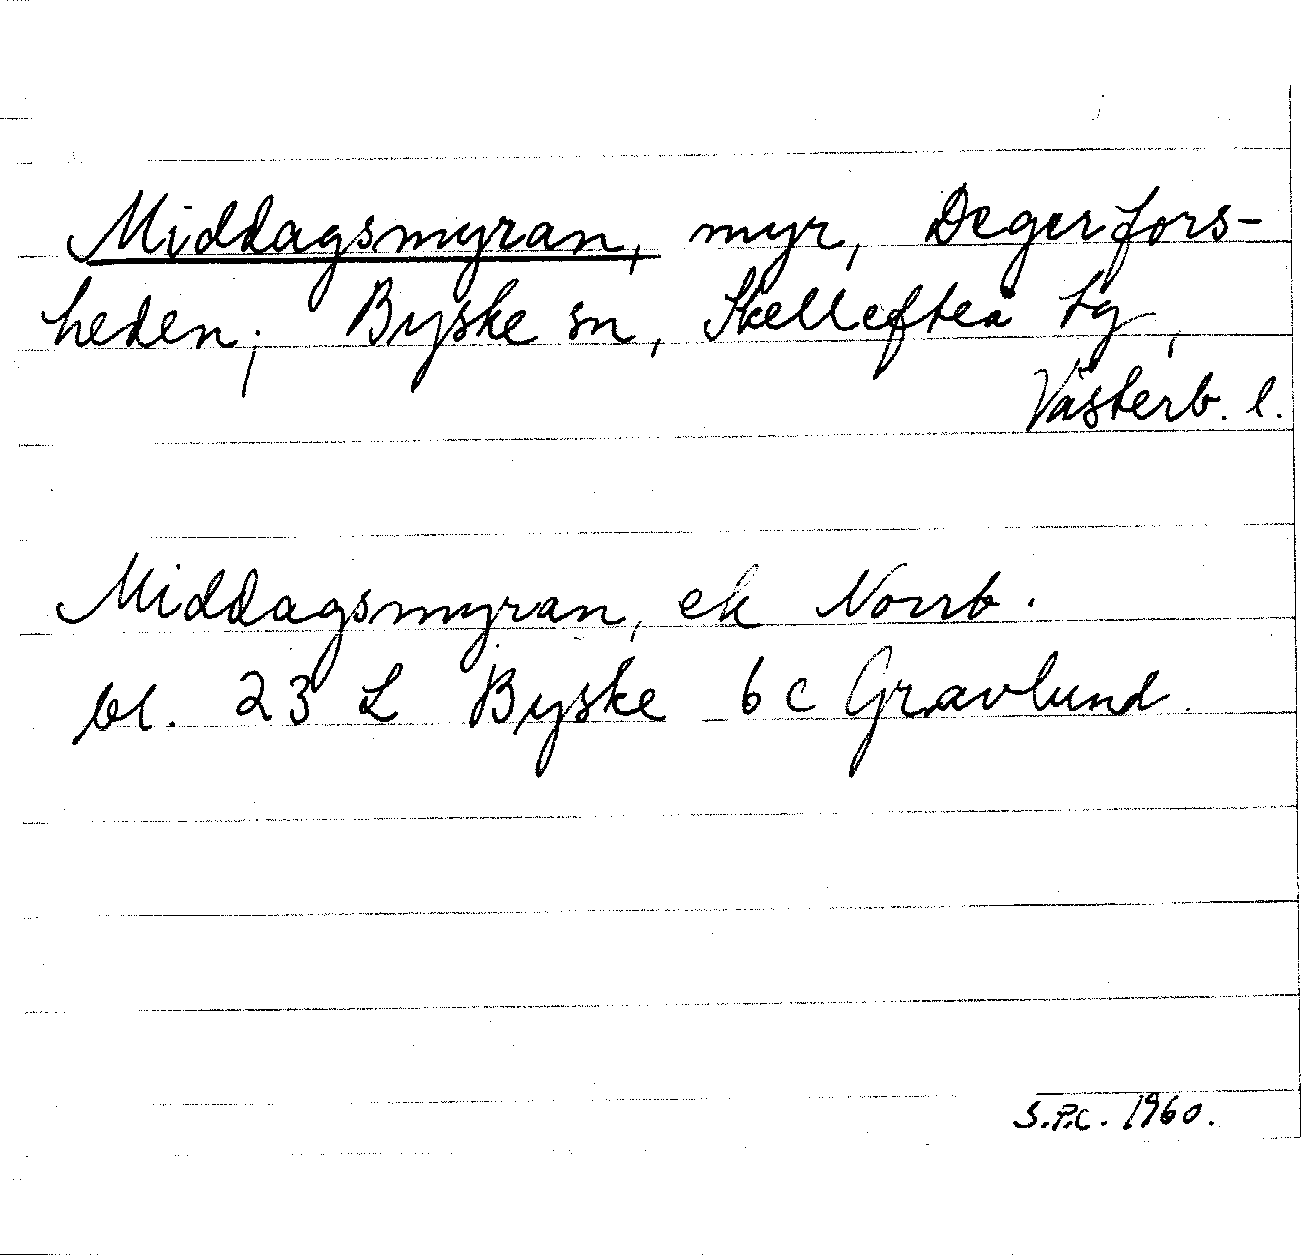 Middagsmyran, myr, Degerfors-
heden; Byske sn, Skellefteå tg,
Västerb. l.
Middagsmyran, ek Norrb.
bl. 23 L Byske 6 c Gravlund.
S.P.C. 1960.